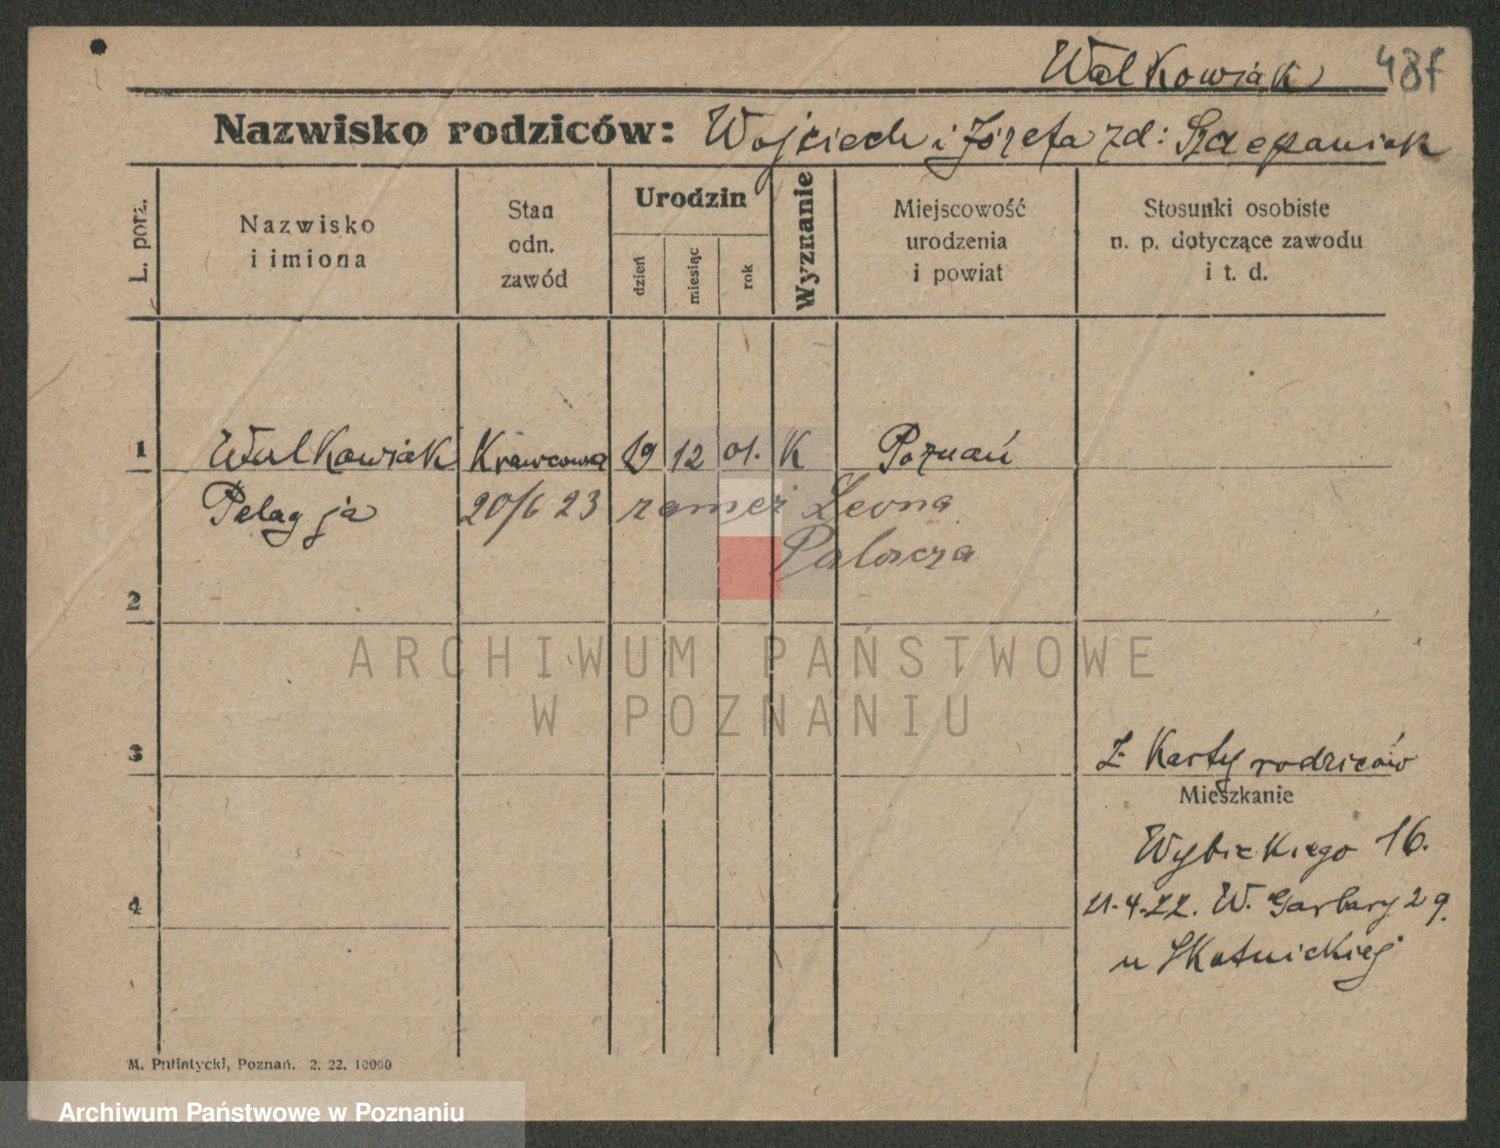 Walkowiak 48f
Nazwisko rodziców: Wojciech i Józefa zd: Szczepaniak
L. porz.
Nazwisko
i imiona
Stan
odn.
zawód
Urodzin
dzień
miesiąc
rok
Wyznanie
Miejscowość
urodzenia
i powiat
Stosunki osobiste
n. p. dotyczące zawodu
i t. d.
1 Walkowiak Krawcowa 19 12 01. K Poznań
Pelagja 20/6 23 zamęż Leona
2
3
Z Karty rodziców
Mieszkanie
Wybickiego 16.
4 21.4.22. W. Garbary 29.
u Skotnickiej
M. Putiatycki, Poznań. 2. 22. 10000
ARCHIWUM PAŃSTWOWE
W POZNANIU
Archiwum Państwowe w Poznaniu